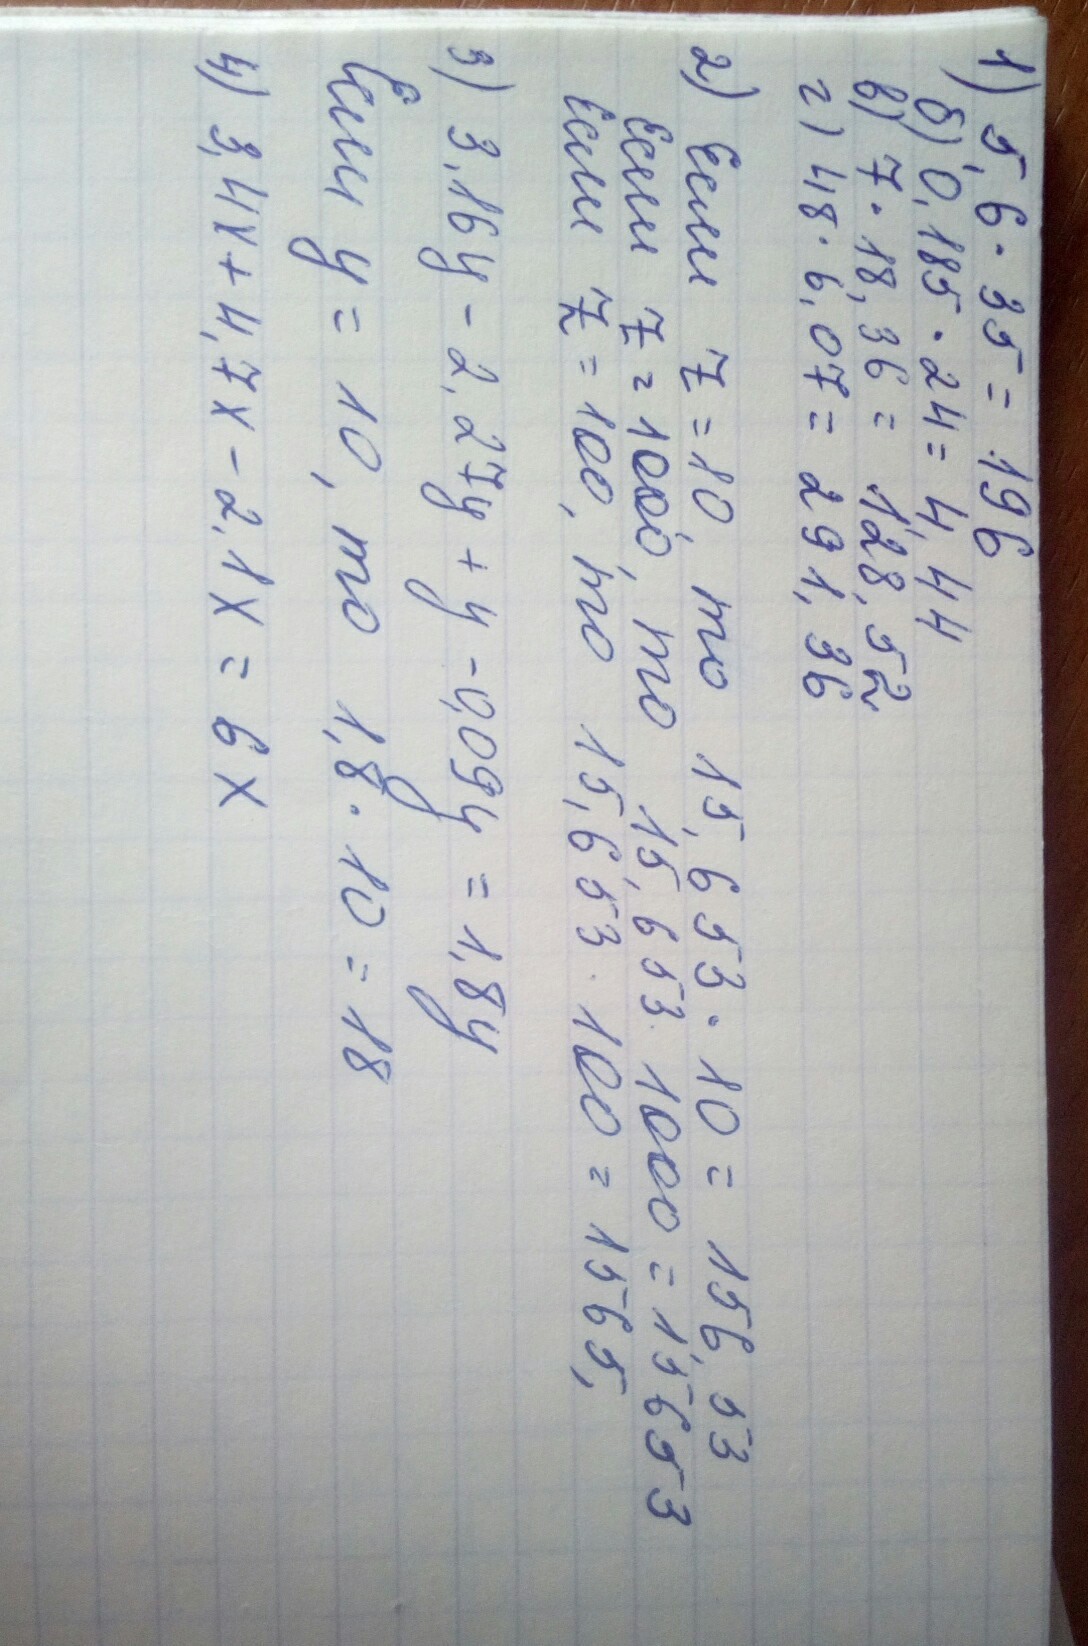 1) 5,6·35 = 196
б) 0,185·24 = 4,44
в) 7·18,36 = 128,52
г) 48·6,07 = 291,36
2) Если Z = 10, то 15,653·10 = 156,53
Если Z = 1000, то 15,653·1000 = 15653
Если Z = 100, то 15,653·100 = 1565,
3) 3,16y - 2,27y + y - 0,09y = 1,8y
Если y = 10, то 1,8·10 = 18
4) 3,4x + 4,7x - 2,1x = 6x